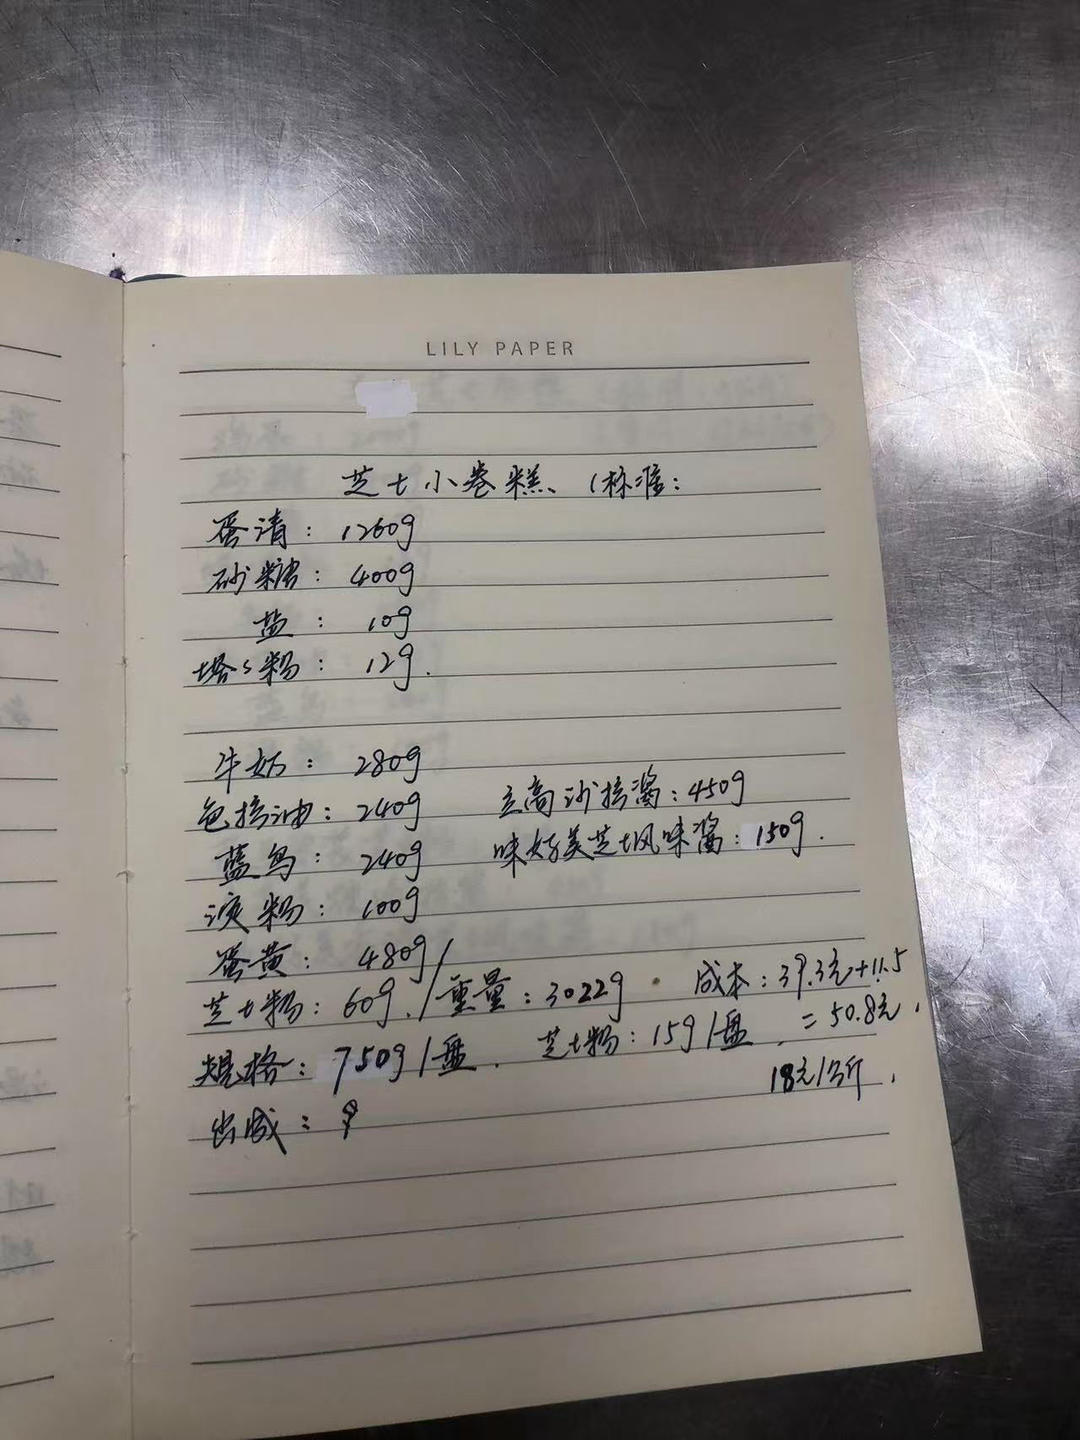 LILY PAPER
芝士小卷糕、(标准:
蛋清: 1260g
砂糖: 400g
盐: 10g
塔塔粉: 12g.
牛奶: 280g
色拉油: 240g 立高沙拉酱: 450g
蓝鸟: 240g 味好美芝士风味酱: 150g.
淀粉: 100g
蛋黄: 480g
芝士粉: 60g. /重量: 3022g 成本: 39.3元+11.5
规格: 750g/盘. 芝士粉: 15g/盘. =50.8元.
18元/公斤.
出成: